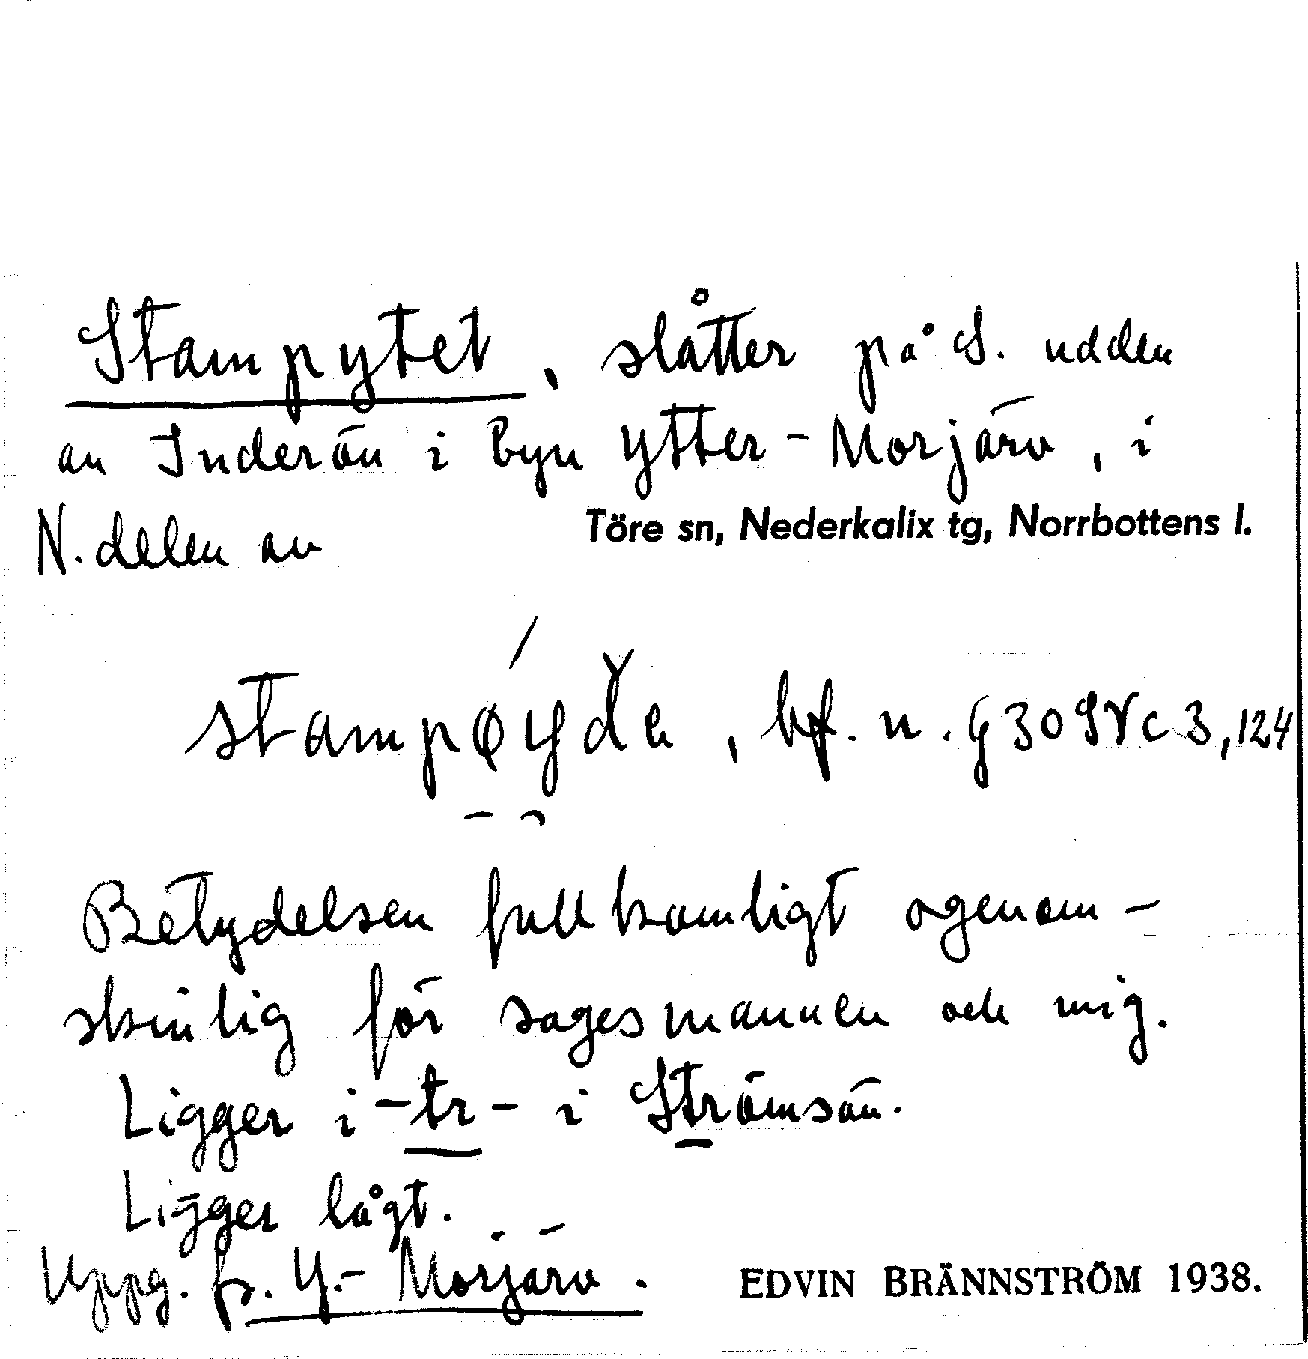 Stampytet, slåtter på S. udden
av Inderön i byn Ytter-Morjärv, i
N. delen av Töre sn, Nederkalix tg, Norrbottens l.
stampøyda, bf. n.
Betydelsen fullkomligt ogenom-
skinlig för sagesmannen och mig.
Ligger i -tr- i Strömsön.
Ligger lågt.
Uppg. fr. Y.-Morjärv. EDVIN BRÄNNSTRÖM 1938.